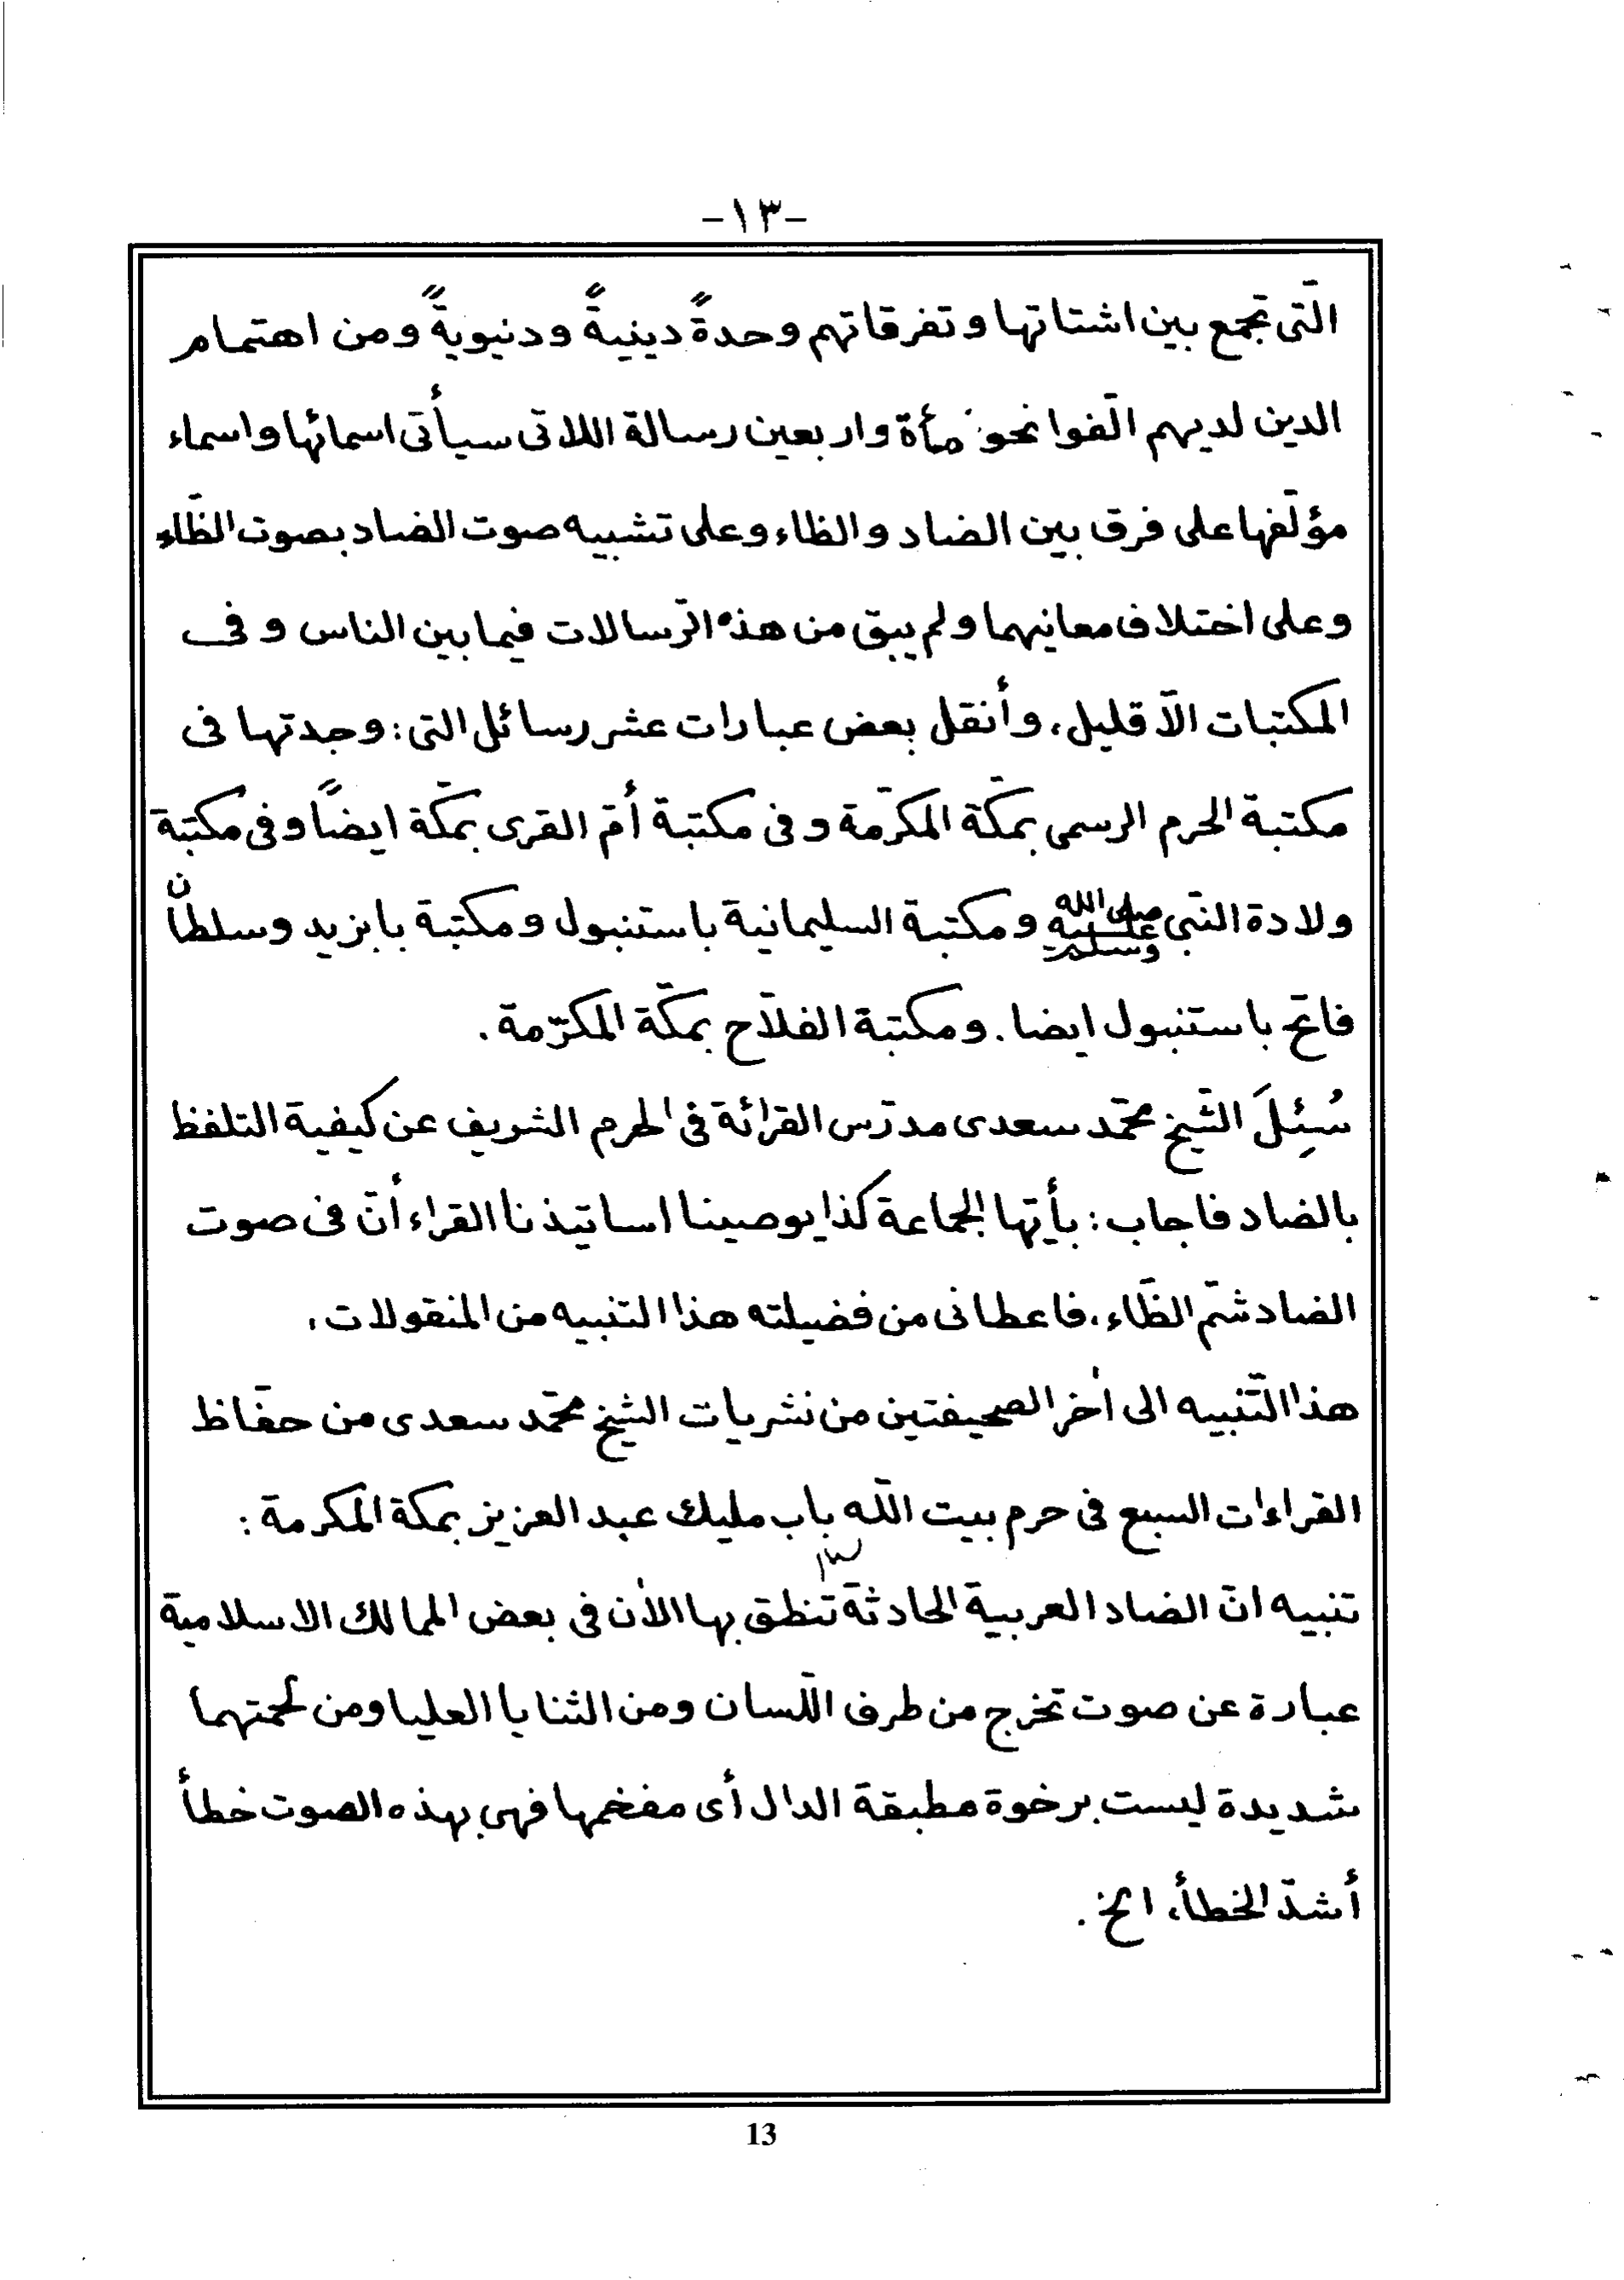 -١٣-
الّتى تجمع بين اشتاتها و تفرقاتهم وحدةً دينيةً ودنيويةً ومن اهتمام
الدين لديهم الّفوا نحو مأة واربعين رسالة اللاتى سيأتى اسمائها واسماء
مؤلّفها على فرق بين الضاد والظاء وعلى تشبيه صوت الضاد بصوت الظّاء
وعلى اختلاف معانيهما ولم يبق من هذه الرّسالات فيما بين الناس و فى
المكتبات الاّ قليل، وأنقل بعض عبارات عشر رسائل التى: وجدتها فى
مكتبة الحرم الرسمى بمكّة المكرّمة و فى مكتبة أمّ القرى بمكّة ايضاً و فى مكتبة
ولادة النّبى صلى الله عليه وسلم ومكتبة السليمانية باستنبول ومكتبة بايزيد وسلطان
فاتح باستنبول ايضا. ومكتبة الفلاّح بمكّة المكرّمة.
سُئِلَ الشّيخ محمّد سعدى مدرّس القرائة فى الحرم الشريف عن كيفية التلفظ
بالضاد فاجاب: يأيّها الجماعة كذا يوصينا اساتيذنا القراء أنّ فى صوت
الضاد شمّ الظّاء، فاعطانى من فضيلته هذا التنبيه من المنقولات،
هذا التّنبيه الى أخر الصحيفتين من نشريات الشيخ محمّد سعدى من حفّاظ
القراءات السبع فى حرم بيت اللّه باب مليك عبد العزيز بمكة المكرمة:
تنبيه انّ الضاد العربية الحادثة تنطق بها الأن فى بعض الممالك الاسلامية
عبارة عن صوت تخرج من طرف اللّسان ومن الثنايا العليا ومن لحمتهما
شديدة ليست برخوة مطبقة الدال أى مفخمها فهى بهذه الصوت خطأ
أشدّ الخطأ، الخ.
13